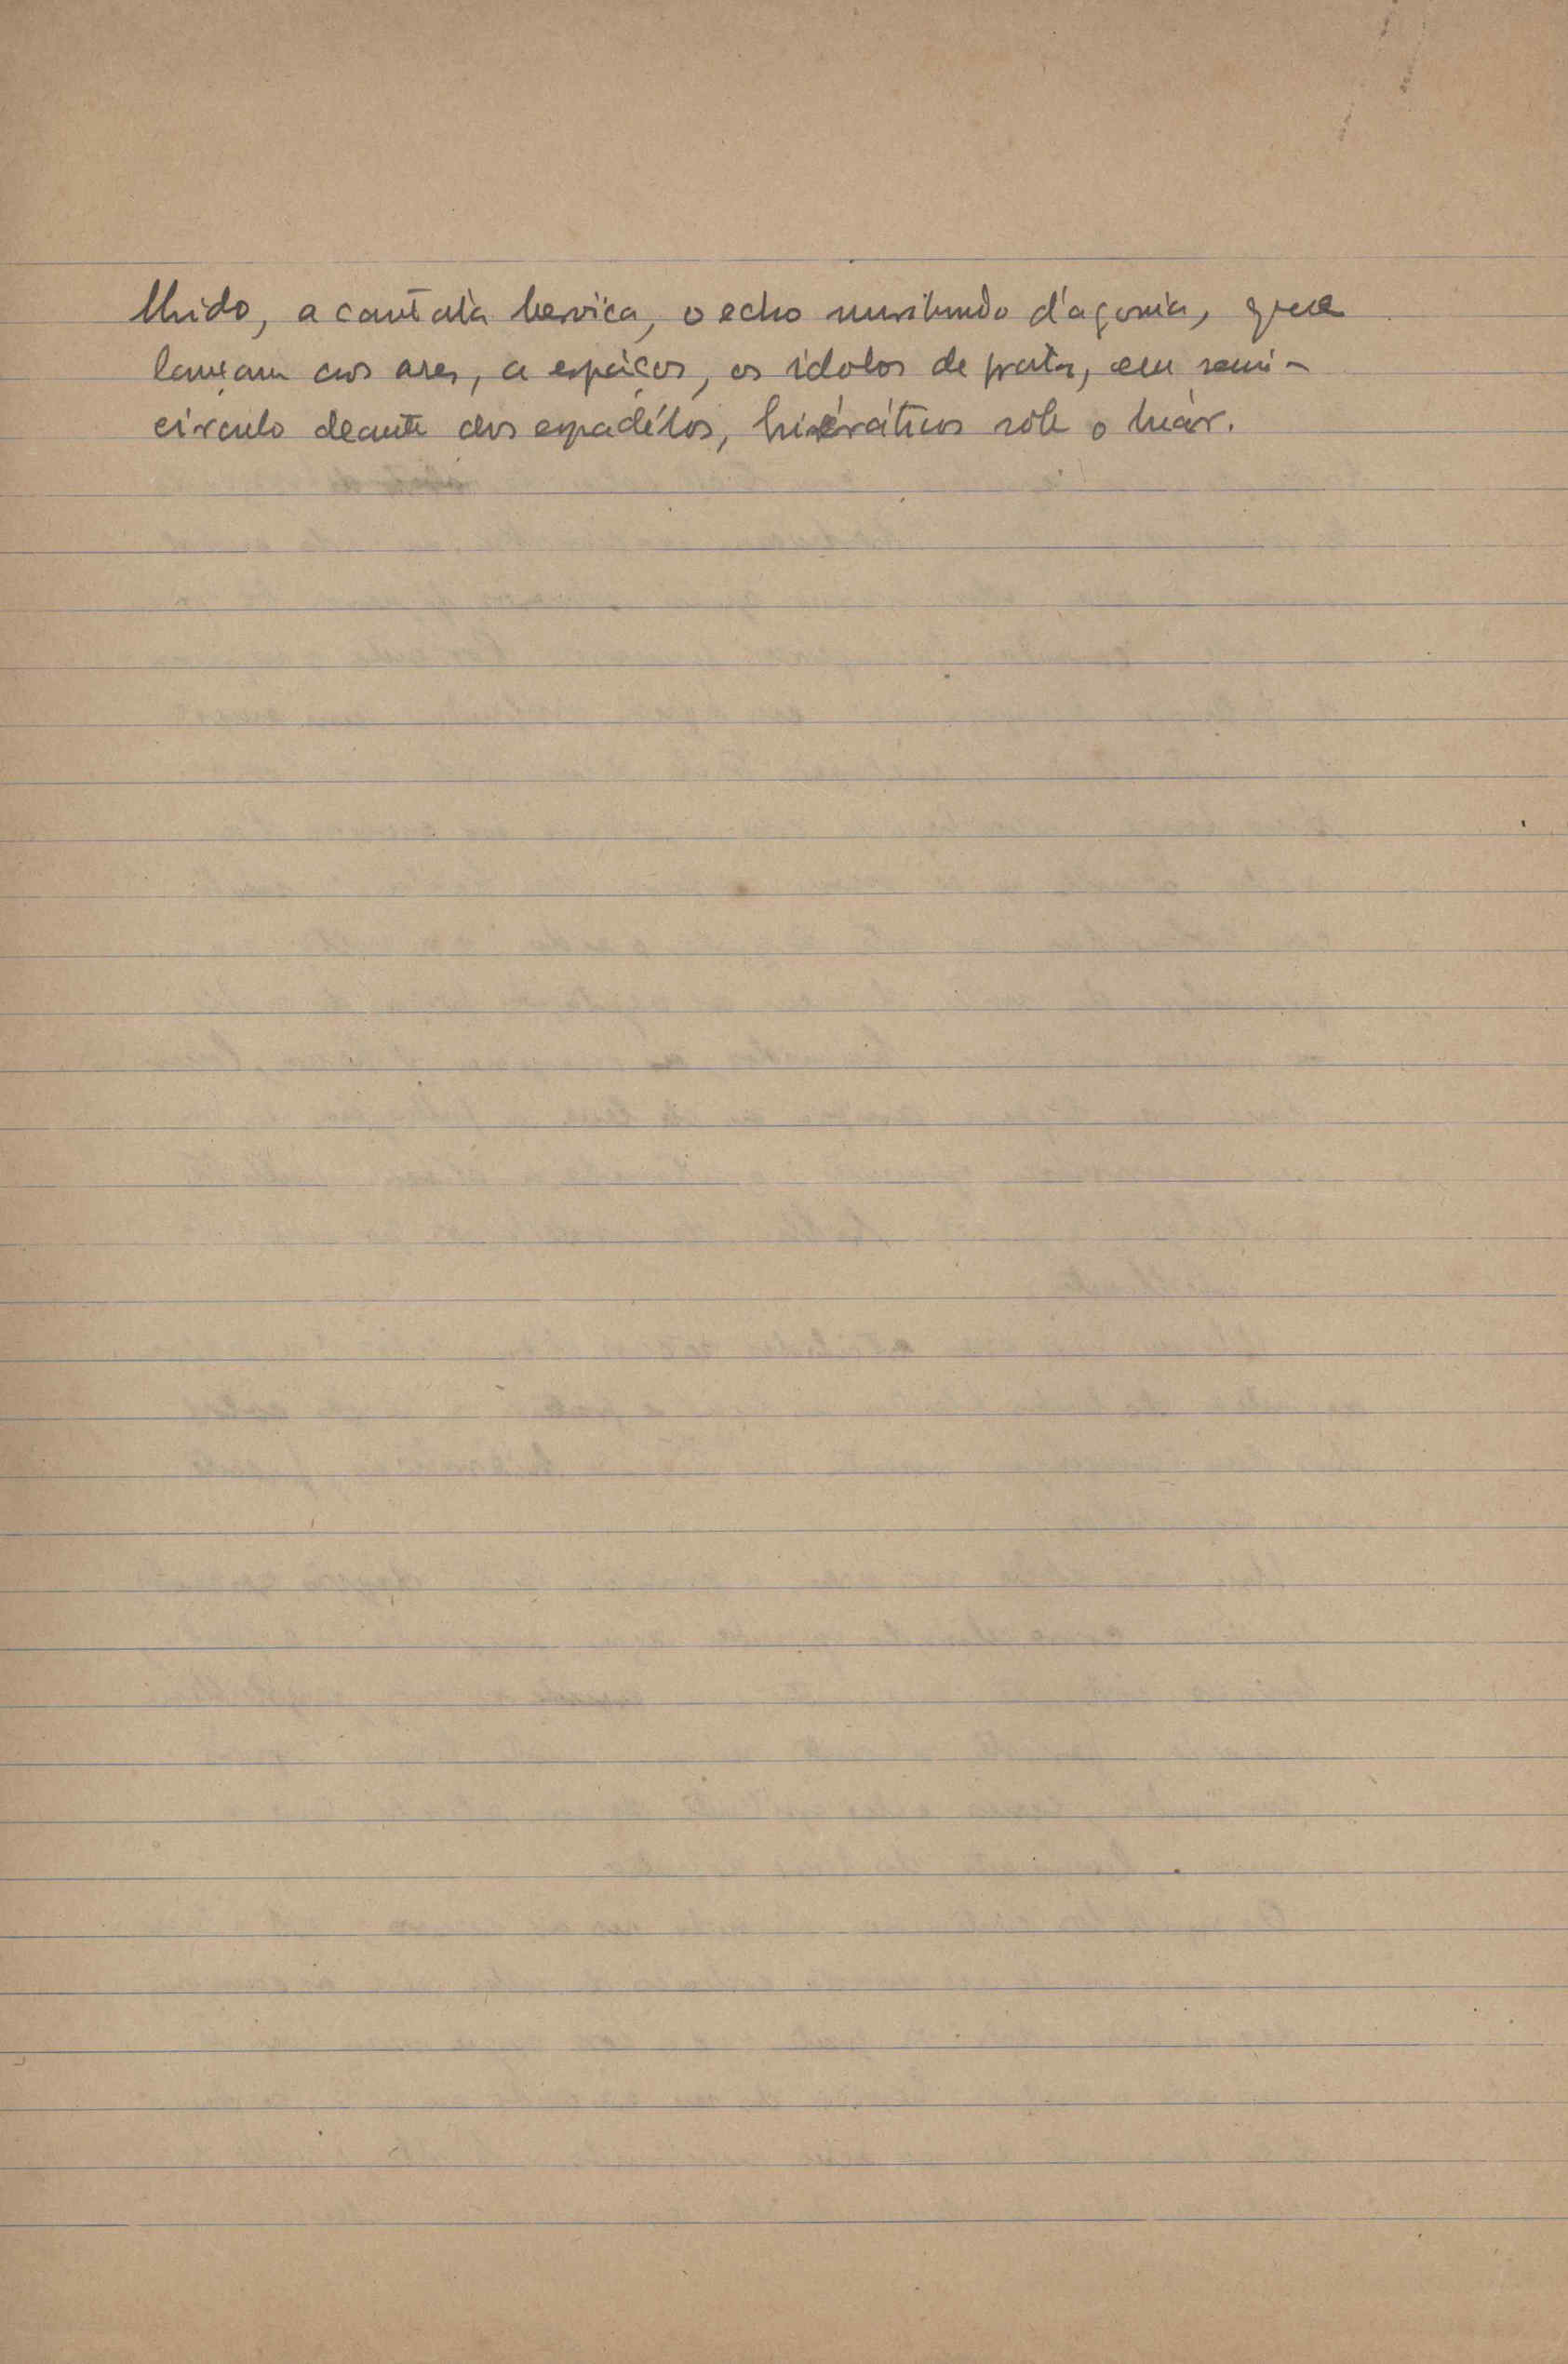 lhido, a cantata heroica, o echo muribundo d'agonia, que
lançam aos ares, a espáços, os idolos de prata, em semi-
circulo deante dos espadélos, hieráticos sôb o luár.